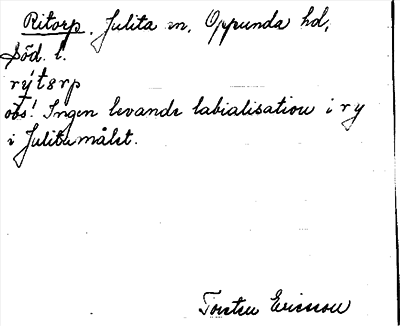 Ritorp. Julita sn, Oppunda hd,
Söd. l.
rýtərp
obs! Ingen levande labialisation i ry
i Julitamålet.
Torsten Ericsson